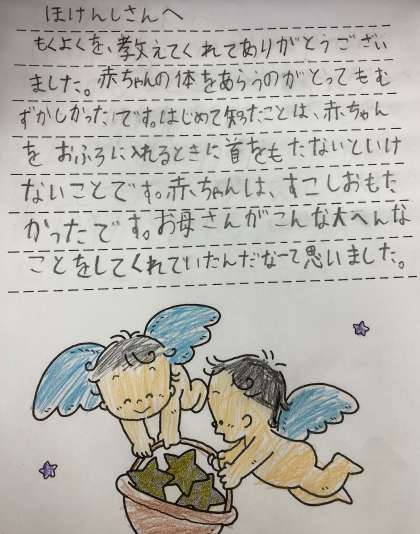 ほけんしさんへ
もくよくを、教えてくれてありがとうござい
ました。赤ちゃんの体をあらうのがとってもむ
ずかしかったです。はじめて知ったことは、赤ちゃん
を おふろに入れるときに首をもたないといけ
ないことです。赤ちゃんは、すこしおもた
かったです。お母さんがこんな大へんな
ことをしてくれていたんだなーて思いました。